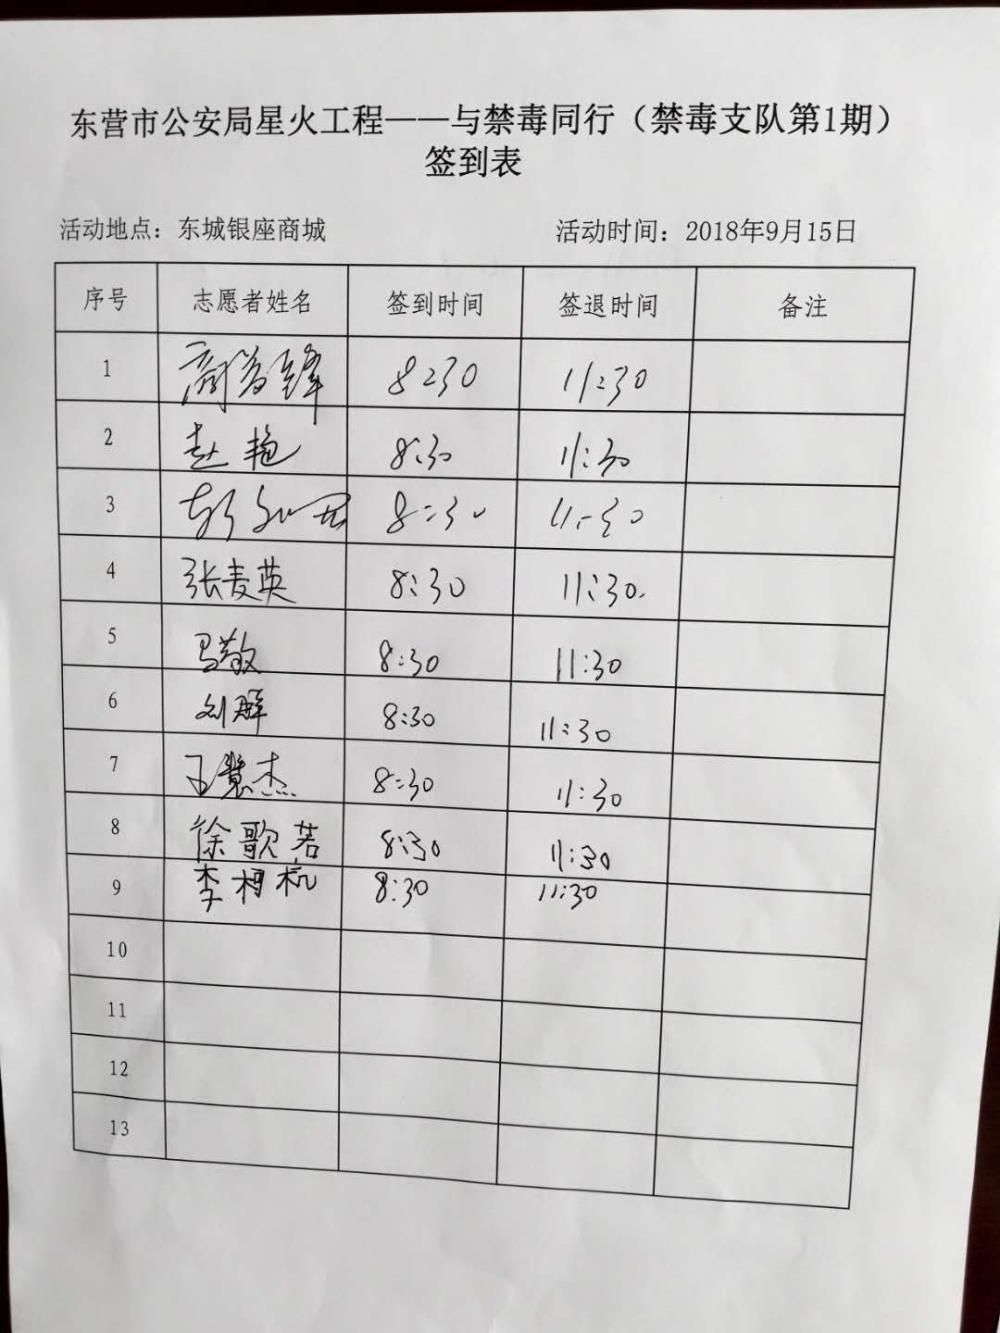 东营市公安局星火工程——与禁毒同行（禁毒支队第1期）
签到表
活动地点：东城银座商城 活动时间：2018年9月15日
序号 志愿者姓名 签到时间 签退时间 备注
1 8:30 11:30
2 赵艳 8:30 11:30
3 8:30 11:30
4 张麦英 8:30 11:30.
5 马敬 8:30 11:30
6 刘群 8:30 11:30
7 王慧杰 8:30 11:30
8 徐歌若 8:30 11:30
9 李柯杭 8:30 11:30
10
11
12
13